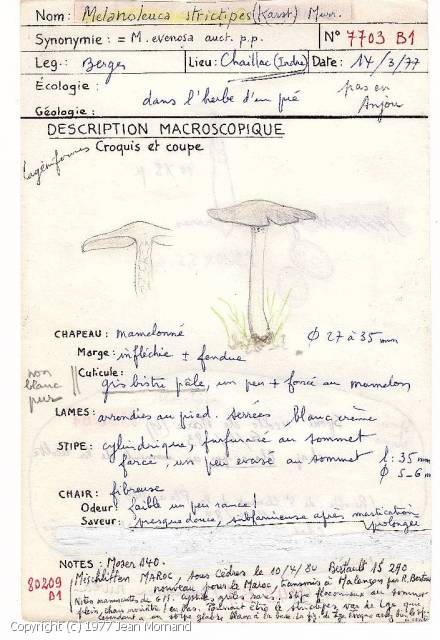 Nom: Melanoleuca strictipes (Karst) Murr.
Synonymie: = M. evenosa auct. p.p. N° 7703 B1
Leg.: Berges Lieu: Chaillac (Indre) Date: 14/3/77
Écologie: dans l'herbe d'un pré pas en Anjou
Géologie:
DESCRIPTION MACROSCOPIQUE
Lagéniformes Croquis et coupe
CHAPEAU: mamelonné Φ 27 à 35 mm
Marge: infléchie ± fendue
non blanc pur Cuticule:
gris bistre pâle, un peu + foncé au mamelon
LAMES: arrondies au pied. serrées blanc crème
STIPE: cylindrique, furfuracé au sommet
farci, un peu evasé au sommet l: 35 mm
Φ 5-6 m
CHAIR: fibreuse
Odeur: faible un peu rance!
Saveur: presque douce, subfarineuse après mastication
prolongée
NOTES: Moser 140.
80209 B1 Mischlitten MAROC, sous Cèdres le 10/4/84 Bertault 15 290
nouveau pour le Maroc, transmis à Malençon par R. Bertault
Notes manuscrites de
Copyright (c) 1977 Jean Mornand